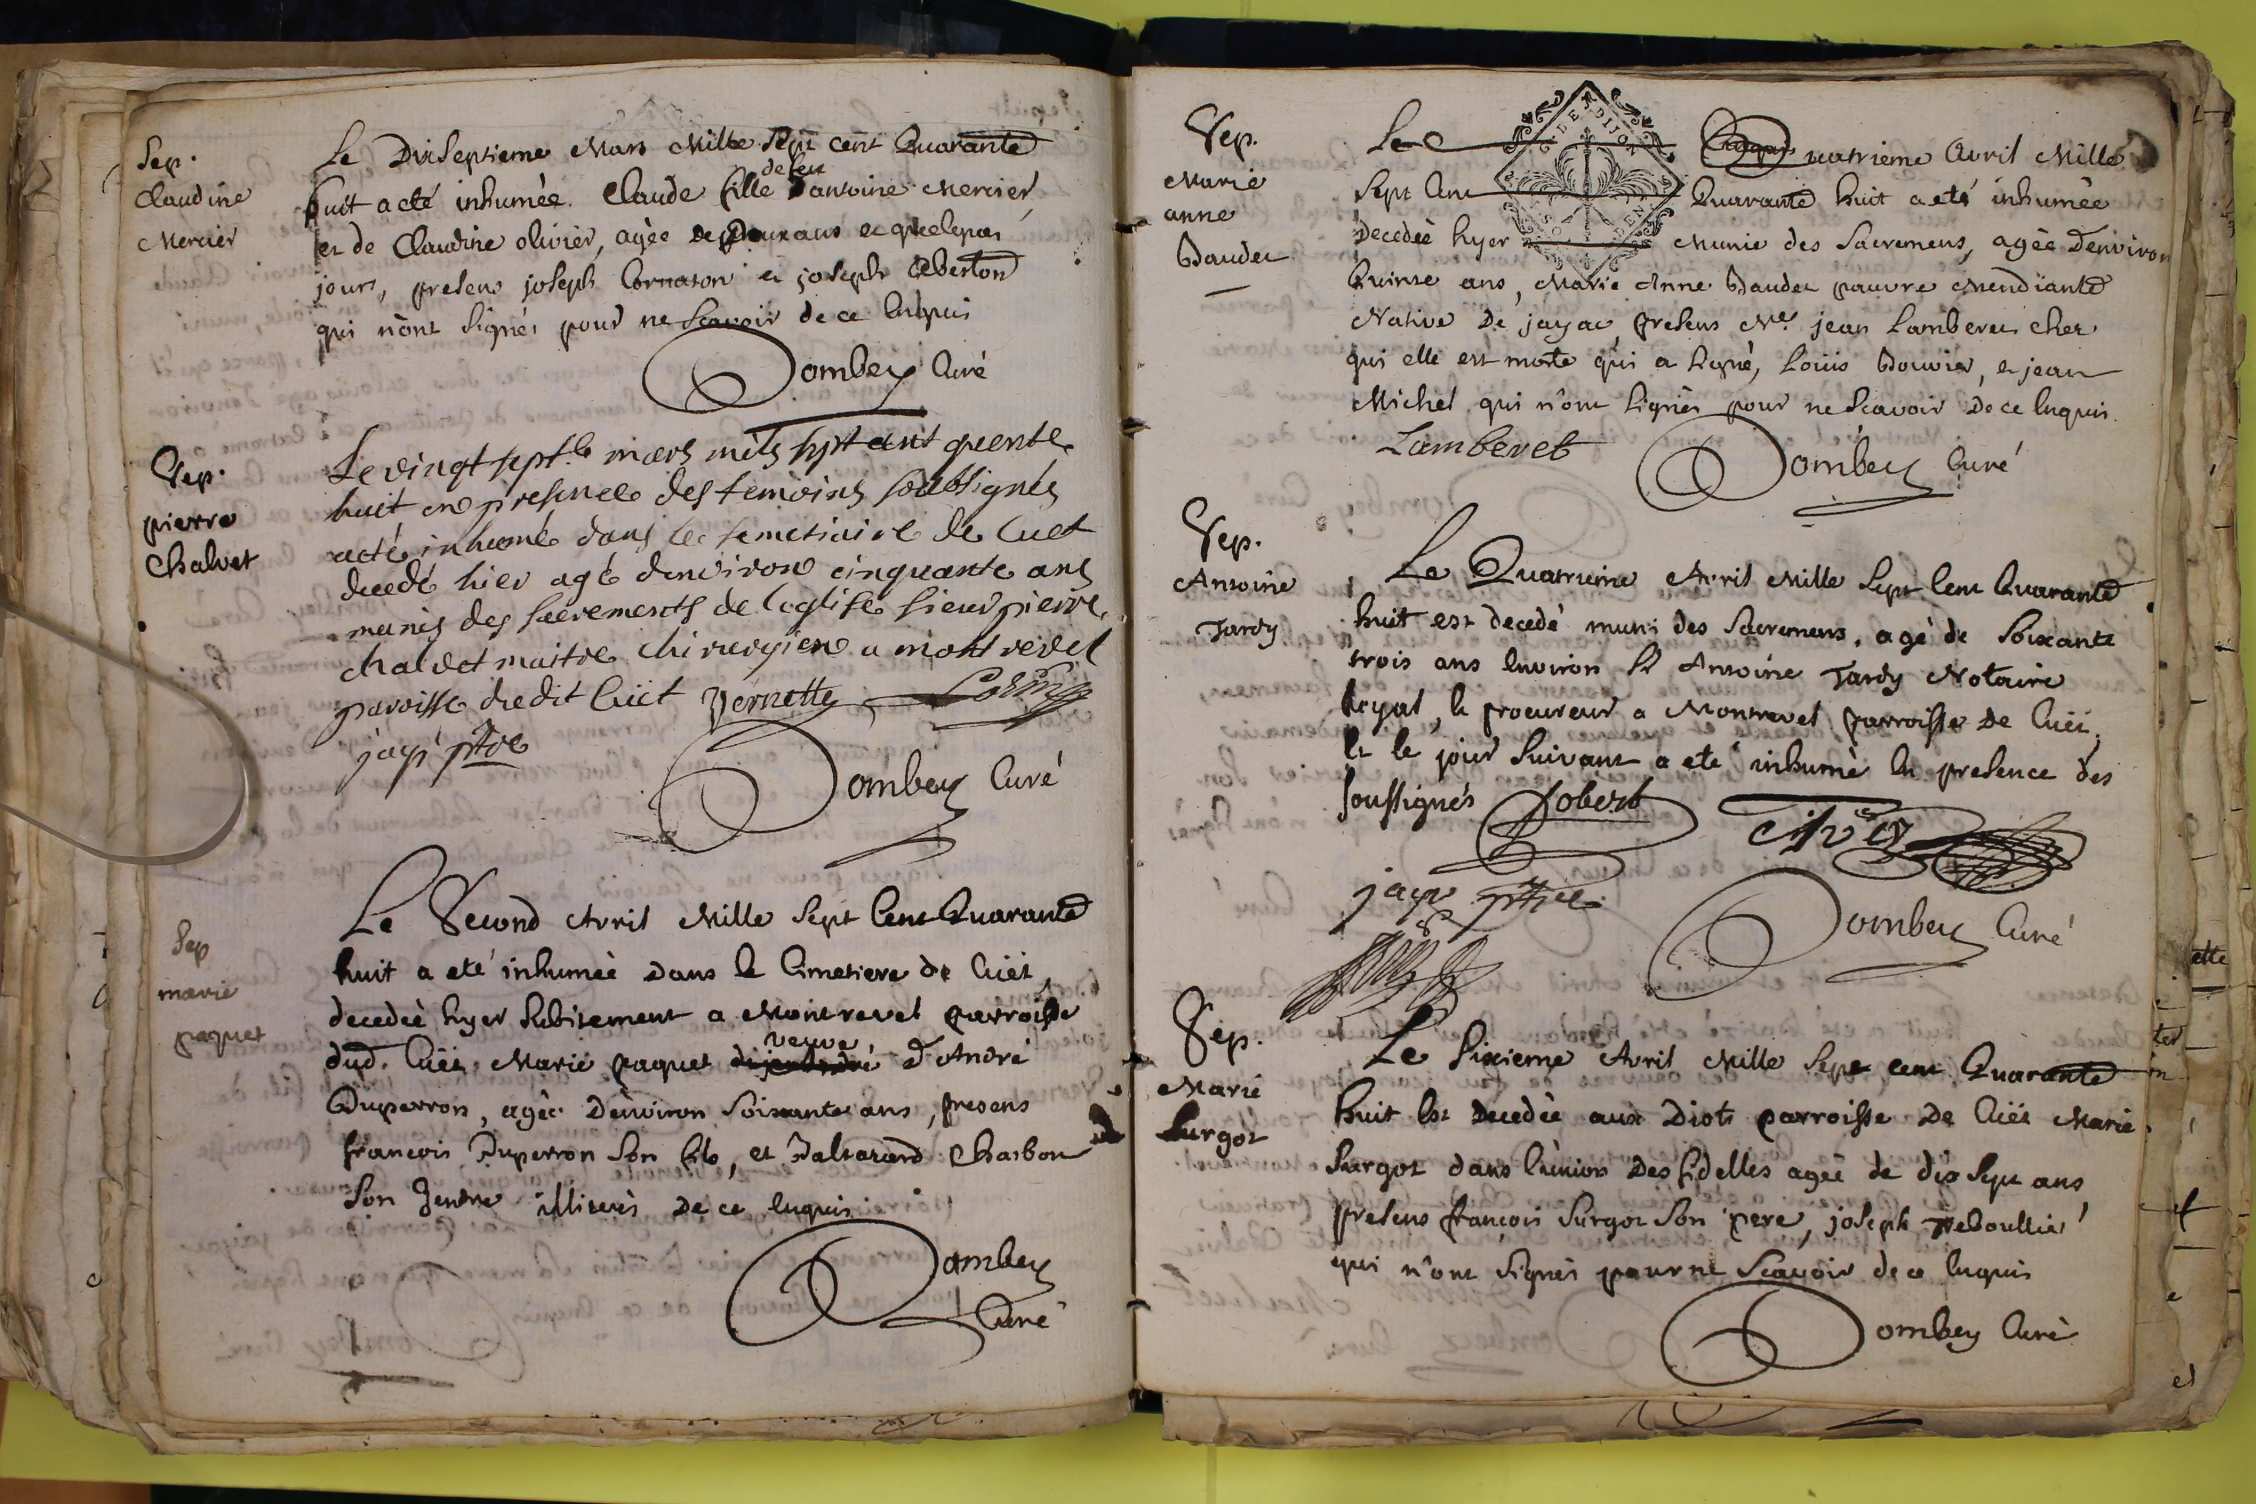 Sep.
Claudine
Mercier
Le Dixseptieme Mars Mille Sept cent Quarante
huit a eté inhumée. Claude fille de feu antoine Mercier
et de Claudine olivier, agée de Deux ans et quelques
jours, presens joseph Cornaton et joseph
qui n'ont Signés pour ne Scavoir de ce Enquis
Dombey Curé
Sep.
pierre
Chalvet
Le vingt sept.e mars mils sept cent quente
huit en presence des temoins soubsignés
a eté inhumé dans le semetiaire de Cuet
decedé hier agé denviron cinquante ans
munis des sacrements de leglise sieur pierre
chalvet maitre chirurgien a montrevel
paroisse dudit Cuët Vernette
jayr ptre
Dombey Curé
Sep
marie
paquet
Le Second Avril Mille Sept Cent Quarante
huit a eté inhumée Dans le Cimetiere de Cuët
decedée hyer Subitement a Montrevel parroisse
dud. Cuët Marie paquet veuve D'André
Duperron, agée D'environ Soixante ans, presens
francois Duperron Son fils, et Baltazard Charbon
Son Gendre illiterés De ce Enquis
Dombey
Curé
Sep.
Marie
anne
Baudet
DE DIJON
Le quatrieme Avril Mille
Sept Cent Quarante huit a eté inhumée
Decedée hyer Munie des Sacremens, agée D'environ
Quinse ans, Marie Anne Baudet pauvre Mendiante
Native De jayac, presens Me. jean Lamberet chez
qui elle est morte qui a Signé, Loüis Bouvier, et jean
Michel qui n'ont Signés pour ne Scavoir De ce Enquis.
Lamberet Dombey Curé
Sep.
Antoine
Tardy
Le Quatrieme Avril Mille Sept Cent Quarante
huit est decedé muni des Sacremens, agé de Soixante
trois ans Environ Sr Antoine Tardy Notaire
Royal, & procureur a Montrevel parroisse de Cuët,
Et le jour Suivant a eté inhumé En presence des
soussignés Jobert
jayr ptre
Dombey Curé
Sep.
Marie
Surgot
Le Sixieme Avril Mille Sept cent Quarante
huit Est Decedée aux Diots parroisse De Cuët Marie
Surgot dans l'union Des fidelles agée de dix Sept ans
presens françois Surgot Son pere, joseph Reboullié
qui n'ont Signés pour ne Scavoir de ce Enquis
Dombey Curé